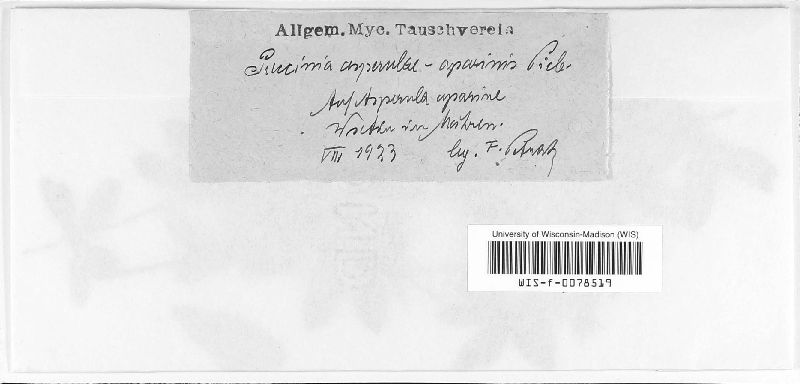 Allgem. Myc. Tauschverein
Puccinia asperulae-aparinis Picb.
Auf Asperula aparine
in Mähren.
VIII 1923 leg. F. Petrak
University of Wisconsin-Madison (WIS)
WIS-f-0078519